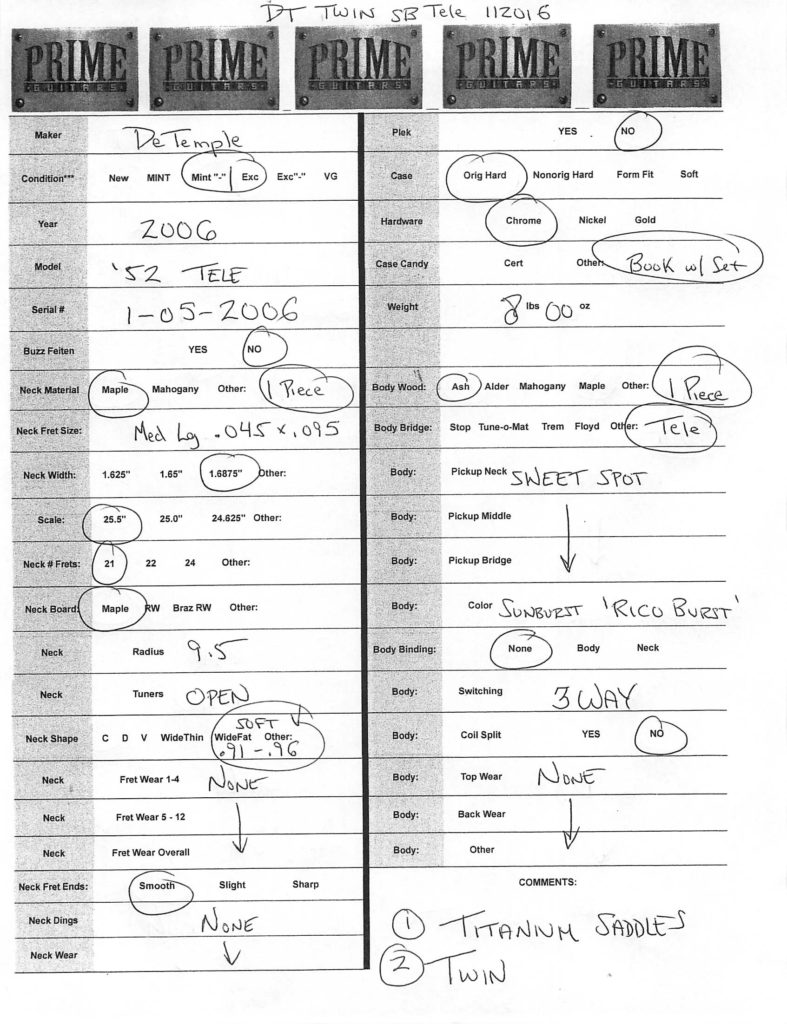 DT TWIN SB Tele 112016
PRIME GUITARS PRIME GUITARS PRIME GUITARS PRIME GUITARS PRIME GUITARS
Maker DeTemple
Condition*** New MINT Mint "-" Exc Exc"-" VG
Year 2006
Model '52 TELE
Serial # 1-05-2006
Buzz Feiten YES NO
Neck Material Maple Mahogany Other: 1 Piece
Neck Fret Size: Med Lg .045 x .095
Neck Width: 1.625" 1.65" 1.6875" Other:
Scale: 25.5" 25.0" 24.625" Other:
Neck # Frets: 21 22 24 Other:
Neck Board: Maple RW Braz RW Other:
Neck Radius 9.5
Neck Tuners OPEN
Neck Shape C D V WideThin WideFat Other: SOFT V .91 - .96
Neck Fret Wear 1-4 NONE
Neck Fret Wear 5 - 12
Neck Fret Wear Overall
Neck Fret Ends: Smooth Slight Sharp
Neck Dings NONE
Neck Wear
Plek YES NO
Case Orig Hard Nonorig Hard Form Fit Soft
Hardware Chrome Nickel Gold
Case Candy Cert Other: BOOK w/ Set
Weight 8 lbs 00 oz
Body Wood: Ash Alder Mahogany Maple Other: 1 Piece
Body Bridge: Stop Tune-o-Mat Trem Floyd Other: TELE
Body: Pickup Neck SWEET SPOT
Body: Pickup Middle
Body: Pickup Bridge
Body: Color SUNBURST 'RICO BURST'
Body Binding: None Body Neck
Body: Switching 3 WAY
Body: Coil Split YES NO
Body: Top Wear NONE
Body: Back Wear
Body: Other
COMMENTS:
1 TITANIUM SADDLES
2 TWIN